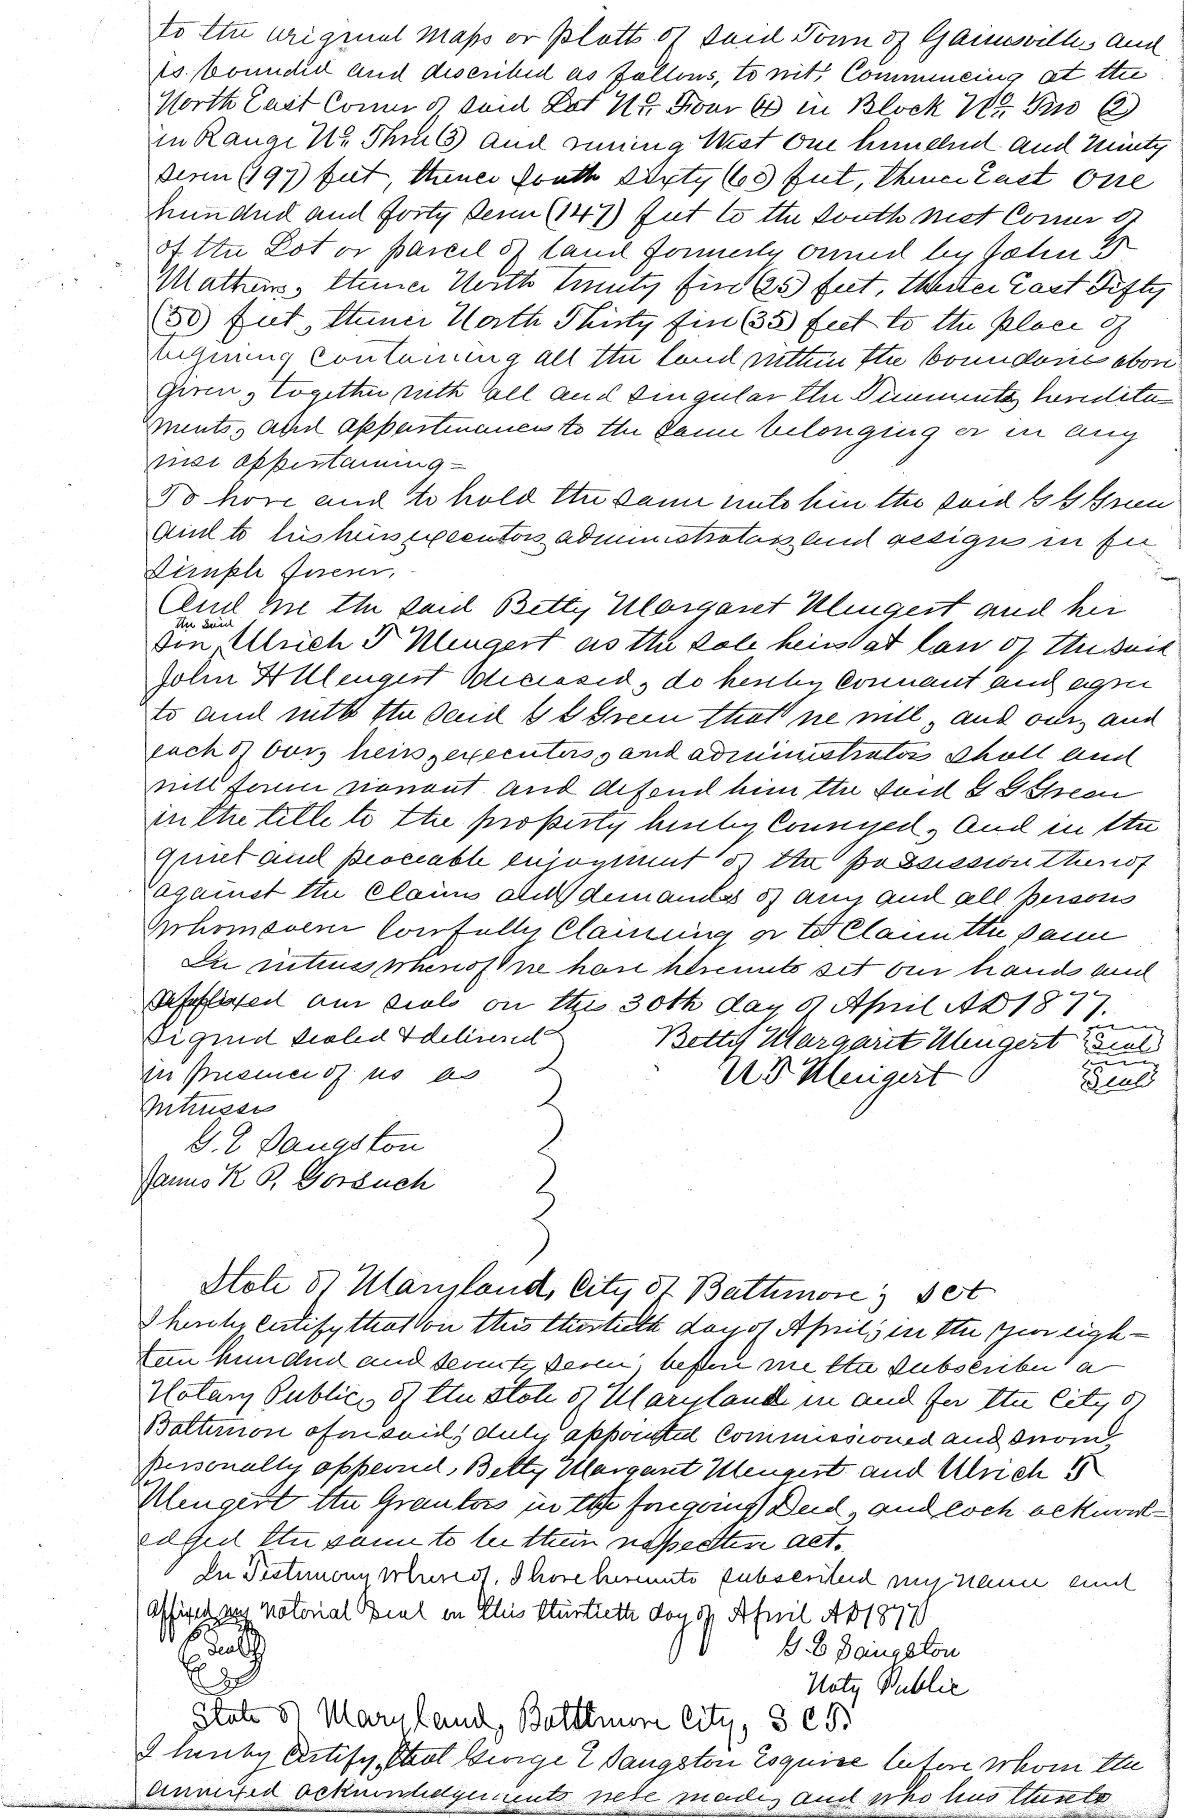 to the original maps or platts of said Town of Gainesville, and
is bounded and described as follows, to wit, Commencing at the
North East Corner of said Lot No. Four (4) in Block No. Two (2)
in Range No. Three (3) and runing West One hundred and Ninety
seven (197) feet, thence South Sixty (60) feet, thence East One
hundred and forty seven (147) feet to the South West Corner of
of the Lot or parcel of land formerly owned by John
Mathews, thence North twenty five (25) feet, thence East Fifty
(50) feet, thence North Thirty five (35) feet to the place of
begining containing all the land within the boundaries above
given, together with all and singular the Tenements, heredita-
ments, and appertenances to the same belonging or in any
wise appertaining-
To have and to hold the same unto him the said G G Green
and to his heirs, executors, administrators, and assigns in fee
simple forever.
And we the said Betty Margaret Mengert and her
the said
son, Ulrich F Mengert as the sole heirs at law of the said
John H Mengert deceased, do hereby covenant and agree
to and with the said G G Green that we will, and our, and
each of our, heirs, executors, and administrators shall and
will forever warrant and defend him the said G G Green
in the title to the property hereby conveyed, and in the
quiet and peaceable enjoyment of the possession thereof
against the claims and demands of any and all persons
whomsoever lawfully Claiming or to Claim the same
In witness whereof we have hereunto set our hands and
affixed our seals on this 30th day of April AD 1877.
Signed sealed & delivered Betty Margaret Mengert Seal
in presence of us as U F Mengert Seal
witnesses
G. E Sangston
James K P. Gorsuch
State of Maryland, City of Baltimore; Sct
I hereby certify that on this thirtieth day of April, in the year eigh-
teen hundred and seventy seven, before me the subscriber a
Notary Public, of the State of Maryland in and for the City of
Baltimore aforesaid, duly appointed Commissioned and sworn,
personally appeared, Betty Margaret Mengert and Ulrich F
Mengert the Grantors in the foregoing Deed, and each acknowl-
edged the same to be their respective act.
In Testimony whereof, I have hereunto subscribed my name and
affixed my notorial Seal on this thirtieth day of April AD 1877
Seal G E Sangston
Noty Public
State of Maryland, Baltimore City, SCT.
I hereby Certify, that George E Sangston Esquire before whom the
annexed acknowledgements were made, and who has thereto